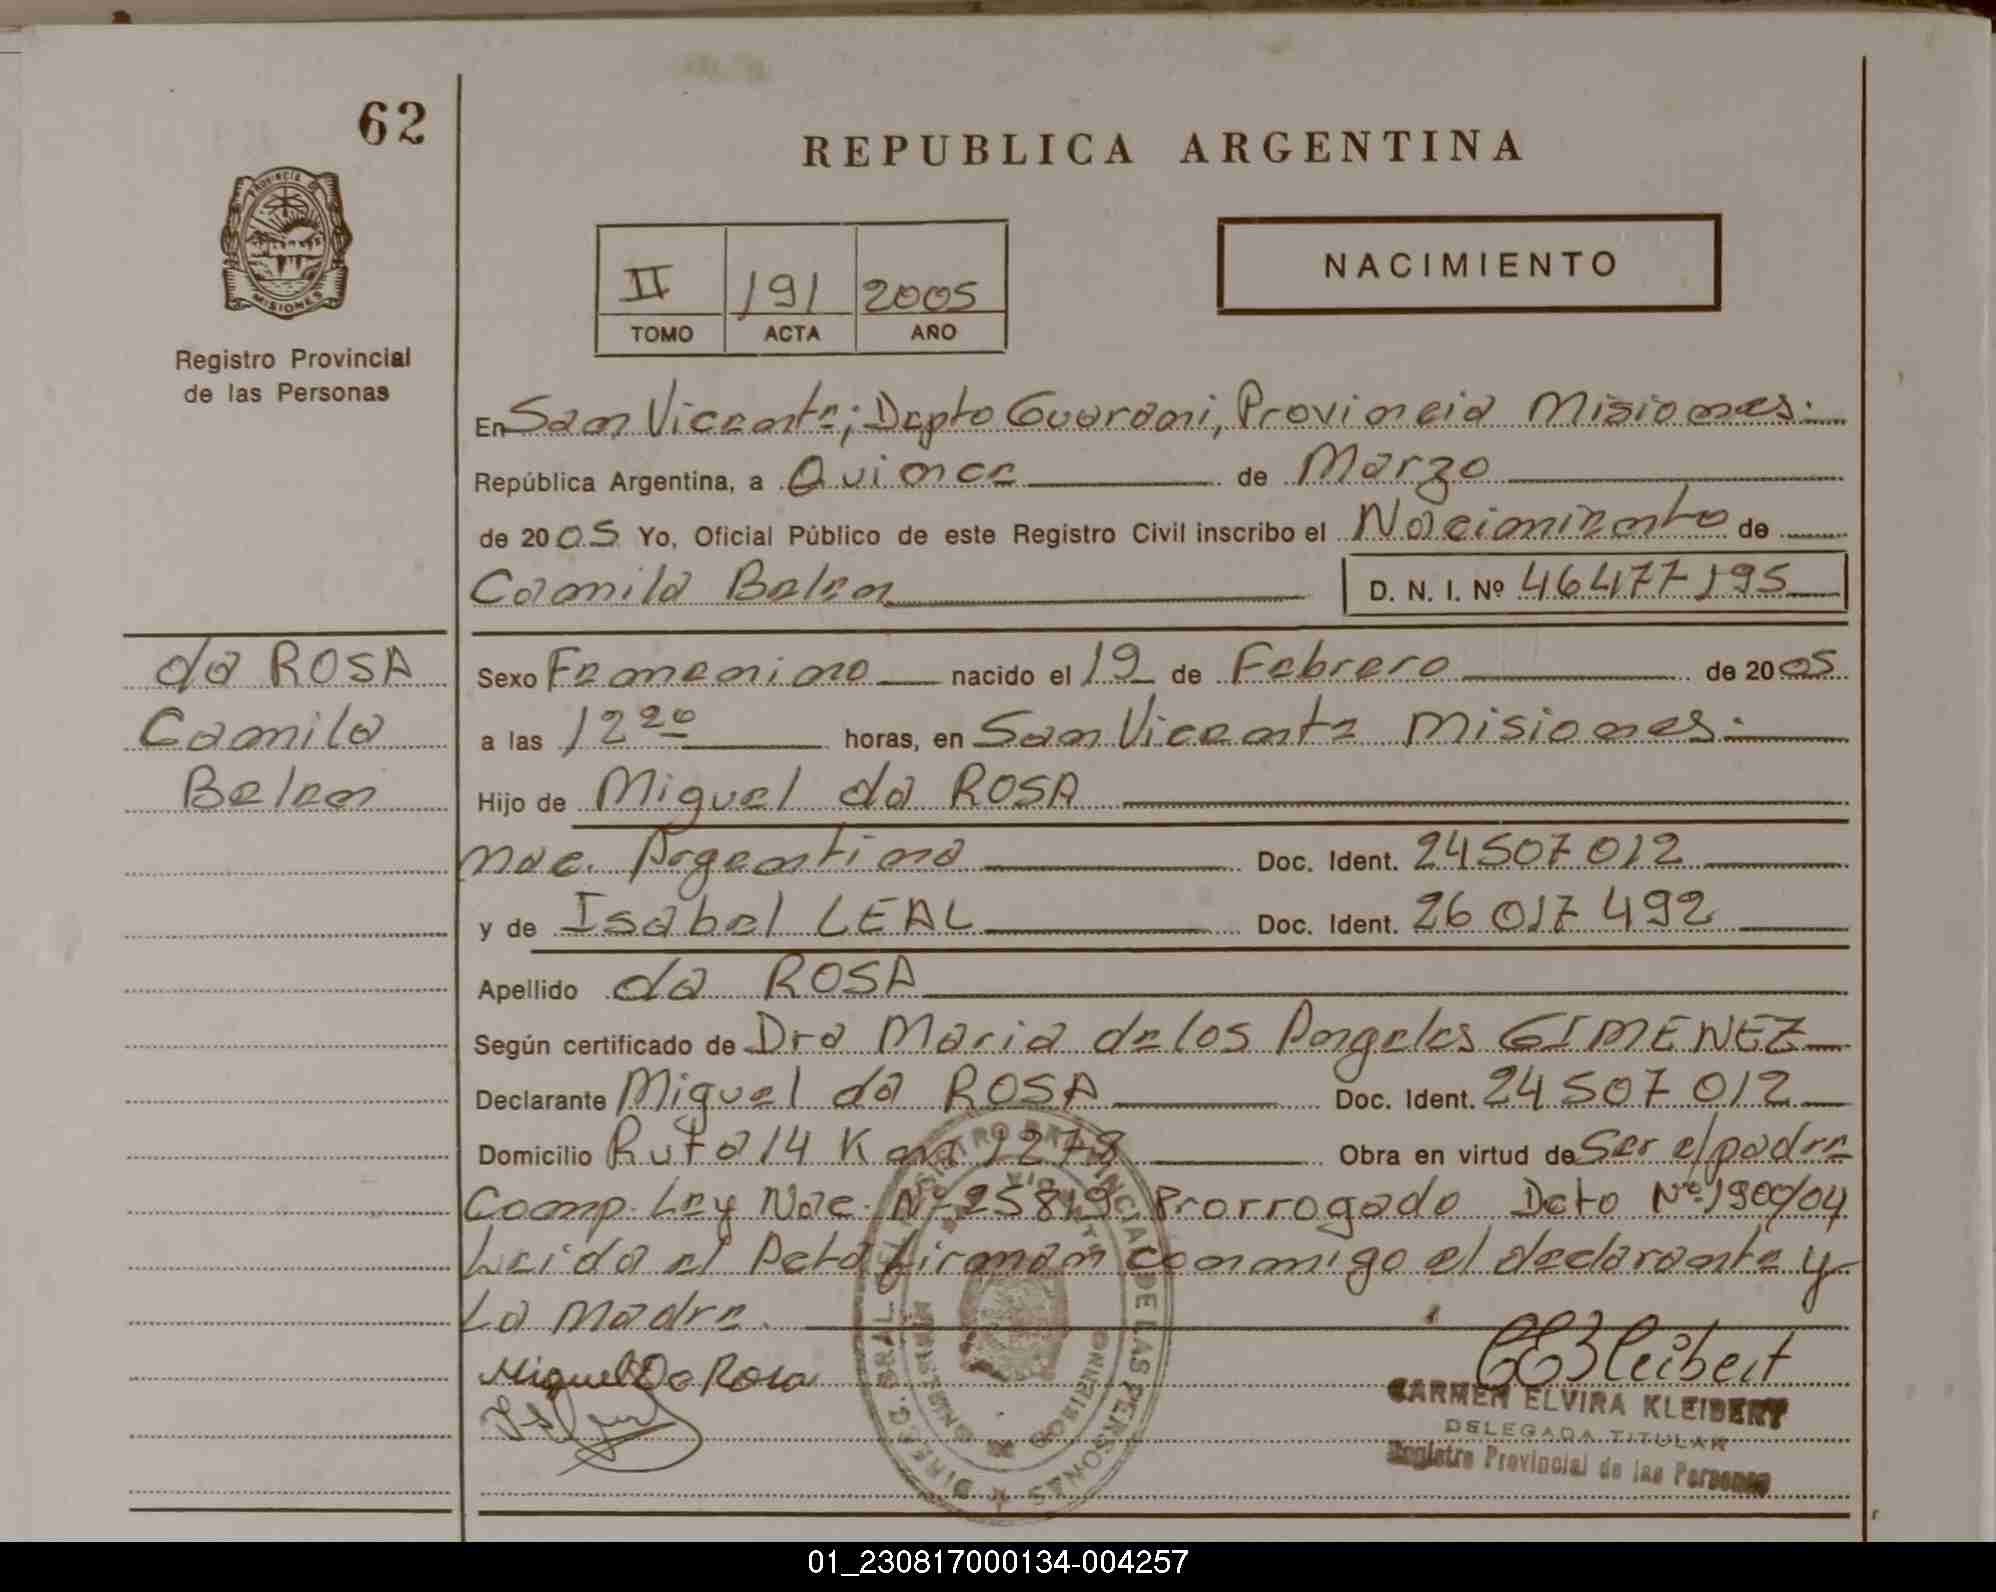 62
REPUBLICA ARGENTINA
PROVINCIA DE
MISIONES
Registro Provincial
de las Personas
NACIMIENTO
II 191 2005
TOMO ACTA AÑO
En San Vicente; Depto Guarani, Provincia Misiones.
República Argentina, a Quince de Marzo
de 2005 Yo, Oficial Público de este Registro Civil inscribo el Nacimiento de
Camila Belen D. N. I. Nº 46477195
da ROSA
Camila
Belen
Sexo Femenino nacido el 19 de Febrero de 2005
a las 12 20 horas, en San Vicente Misiones.
Hijo de Miguel da ROSA
Nac. Argentina Doc. Ident. 24507012
y de Isabel LEAL Doc. Ident. 26 017 492
Apellido da ROSA
Según certificado de Dra Maria de los Angeles GIMENEZ
Declarante Miguel da ROSA Doc. Ident. 24 507 012
Domicilio Ruta 14 Km 1278 Obra en virtud de Ser el padre
Comp. Ley Nac. Nº 25819 Prorrogado Dcto Nº 1900/04
Leida el Acta firman conmigo el declarante y
La Madre.
Miguel Da Rosa
CEKleibert
CARMEN ELVIRA KLEIBERT
DELEGADA TITULAR
Registro Provincial de las Personas
01_230817000134-004257